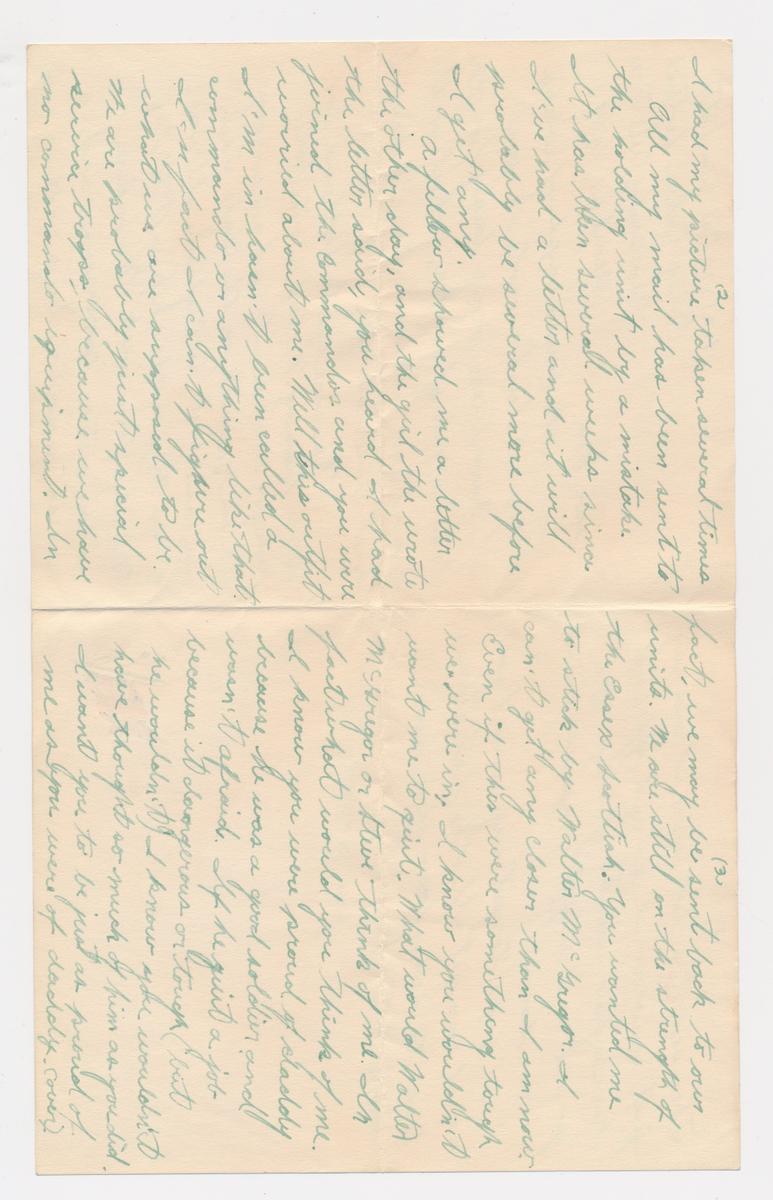 (2
I had my picture taken several times
All my mail has been sent to
the holding unit by a mistake.
It has been several weeks since
I've had a letter and it will
probably be several more before
I get any.
A fellow showed me a letter
the other day, and the girl the wrote
the letter said, you heard I had
joined the commandos and you were
worried about me. Well this outfit
I'm in hasn't been called a
commando or anything like that.
In fact I can't figure out
what we are supposed to be.
We are probably just special
service troops, because we have
no commando equipment. In
(3
fact, we may be sent back to our
units. We are still on the strength of
the Essex Scottish. You wanted me
to stick by Walter McGregor. I
can't get any closer than I am now.
Even if this were something tough
we were in, I know you wouldn't
want me to quit. What would Walter
McGregor or Steve think of me. In
fact what would you think of me.
I know you were proud of daddy
because he was a good soldier and
wasn't afraid. If he quit a job
because it dangerous or tough (but
he wouldn't) I know you wouldn't
have thought so much of him as you did.
I want you to be just as proud of
me as you were of daddy. (over)